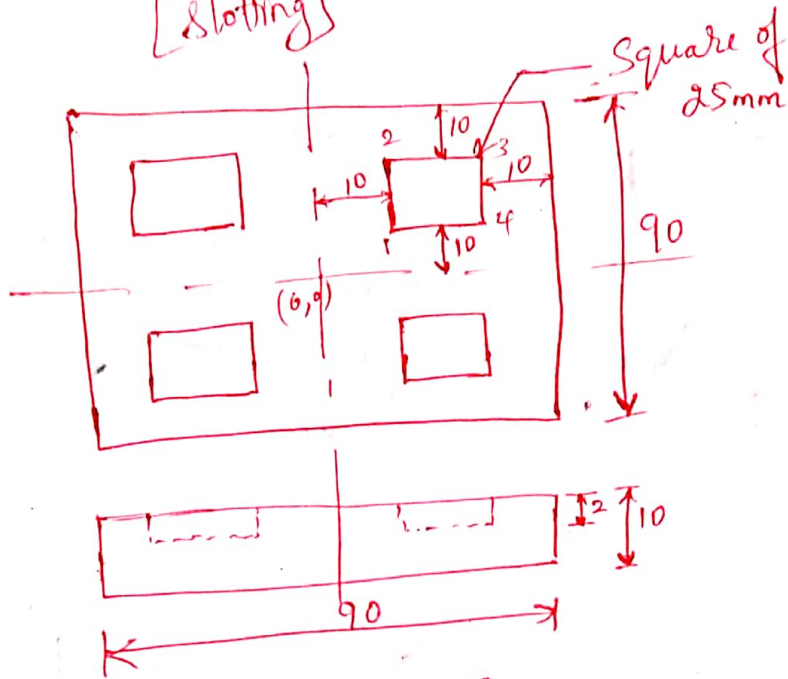 [Slotting]
Square of
25mm
2
10
3
10
10
1
4
10
90
(0,0)
2
10
90